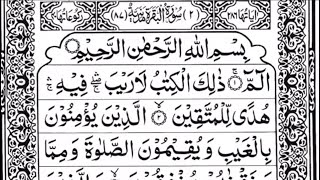 اٰیَاتُهَا ٢٨٦ (٢) سُوْرَةُ الْبَقَرَةِ مَدَنِيَّةٌ (٨٧) رُكُوْعَاتُهَا
بِسْمِ اللّٰهِ الرَّحْمٰنِ الرَّحِيْمِ
الٓمّٓ ۚ﴿١﴾ ذٰلِكَ الْكِتٰبُ لَا رَيْبَ ۛۚ فِيْهِ ۛۚ
هُدًى لِّلْمُتَّقِيْنَ ﴿٢﴾ الَّذِيْنَ يُؤْمِنُوْنَ
بِالْغَيْبِ وَيُقِيْمُوْنَ الصَّلٰوةَ وَمِمَّا